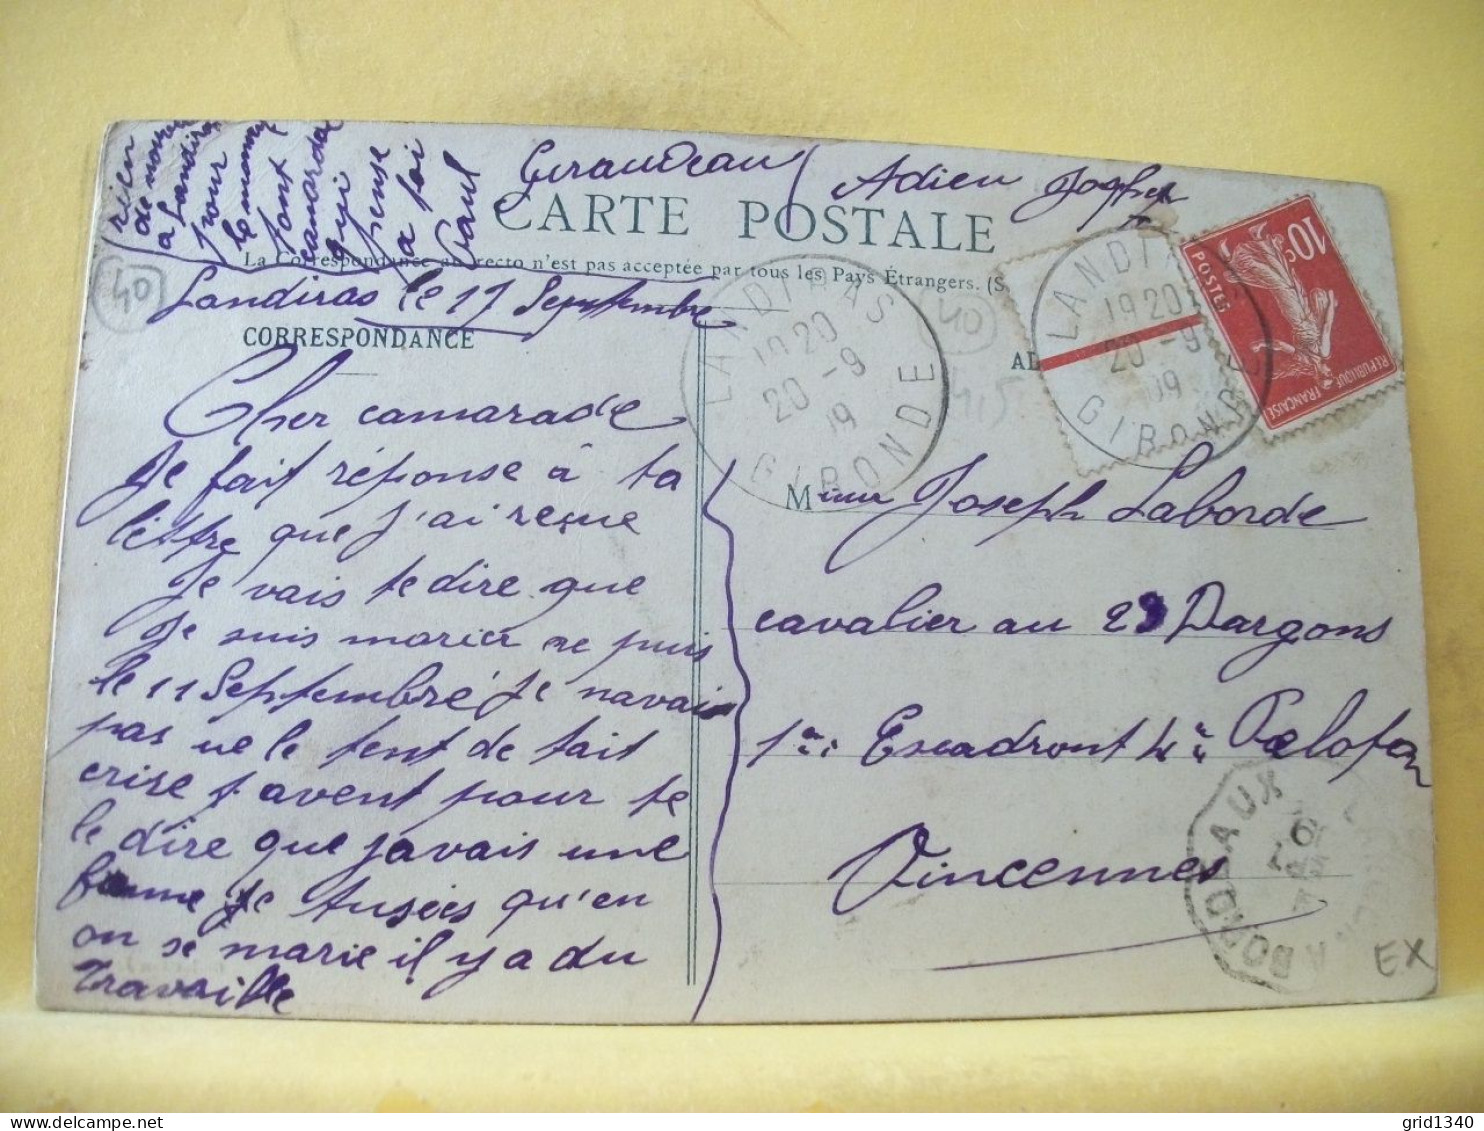 rien
de nouveau
à Landiras
pour
le moment
tont
camarade
qui
pense
a toi
Paul
Giraudeau
Adieu Joseph
CARTE POSTALE
La Correspondance au recto n'est pas acceptée par tous les Pays Étrangers. (S
40
Landiras le 17 Septembre
CORRESPONDANCE
Cher camarade
Je fait réponse à ta
lettre que j'ai reçue
Je vais te dire que
Je suis marier ne puis
le 11 Septembre je navais
pas ue le tent de tait
crire t avent pour te
le dire que javais une
femme je
qu'en
on se marie il y a du
Travaille
LANDIRAS
19 20
20 - 9
19
GIRONDE
40
4,5
AD
LANDIRAS
19 20
20 - 9
09
GIRONDE
10c
POSTES
REPUBLIQUE FRANÇAISE
M
Joseph Laborde
cavalier au 23 Dargons
1er Escadront 4e Peloton
Vincennes
BORDEAUX A
EX
grid1340